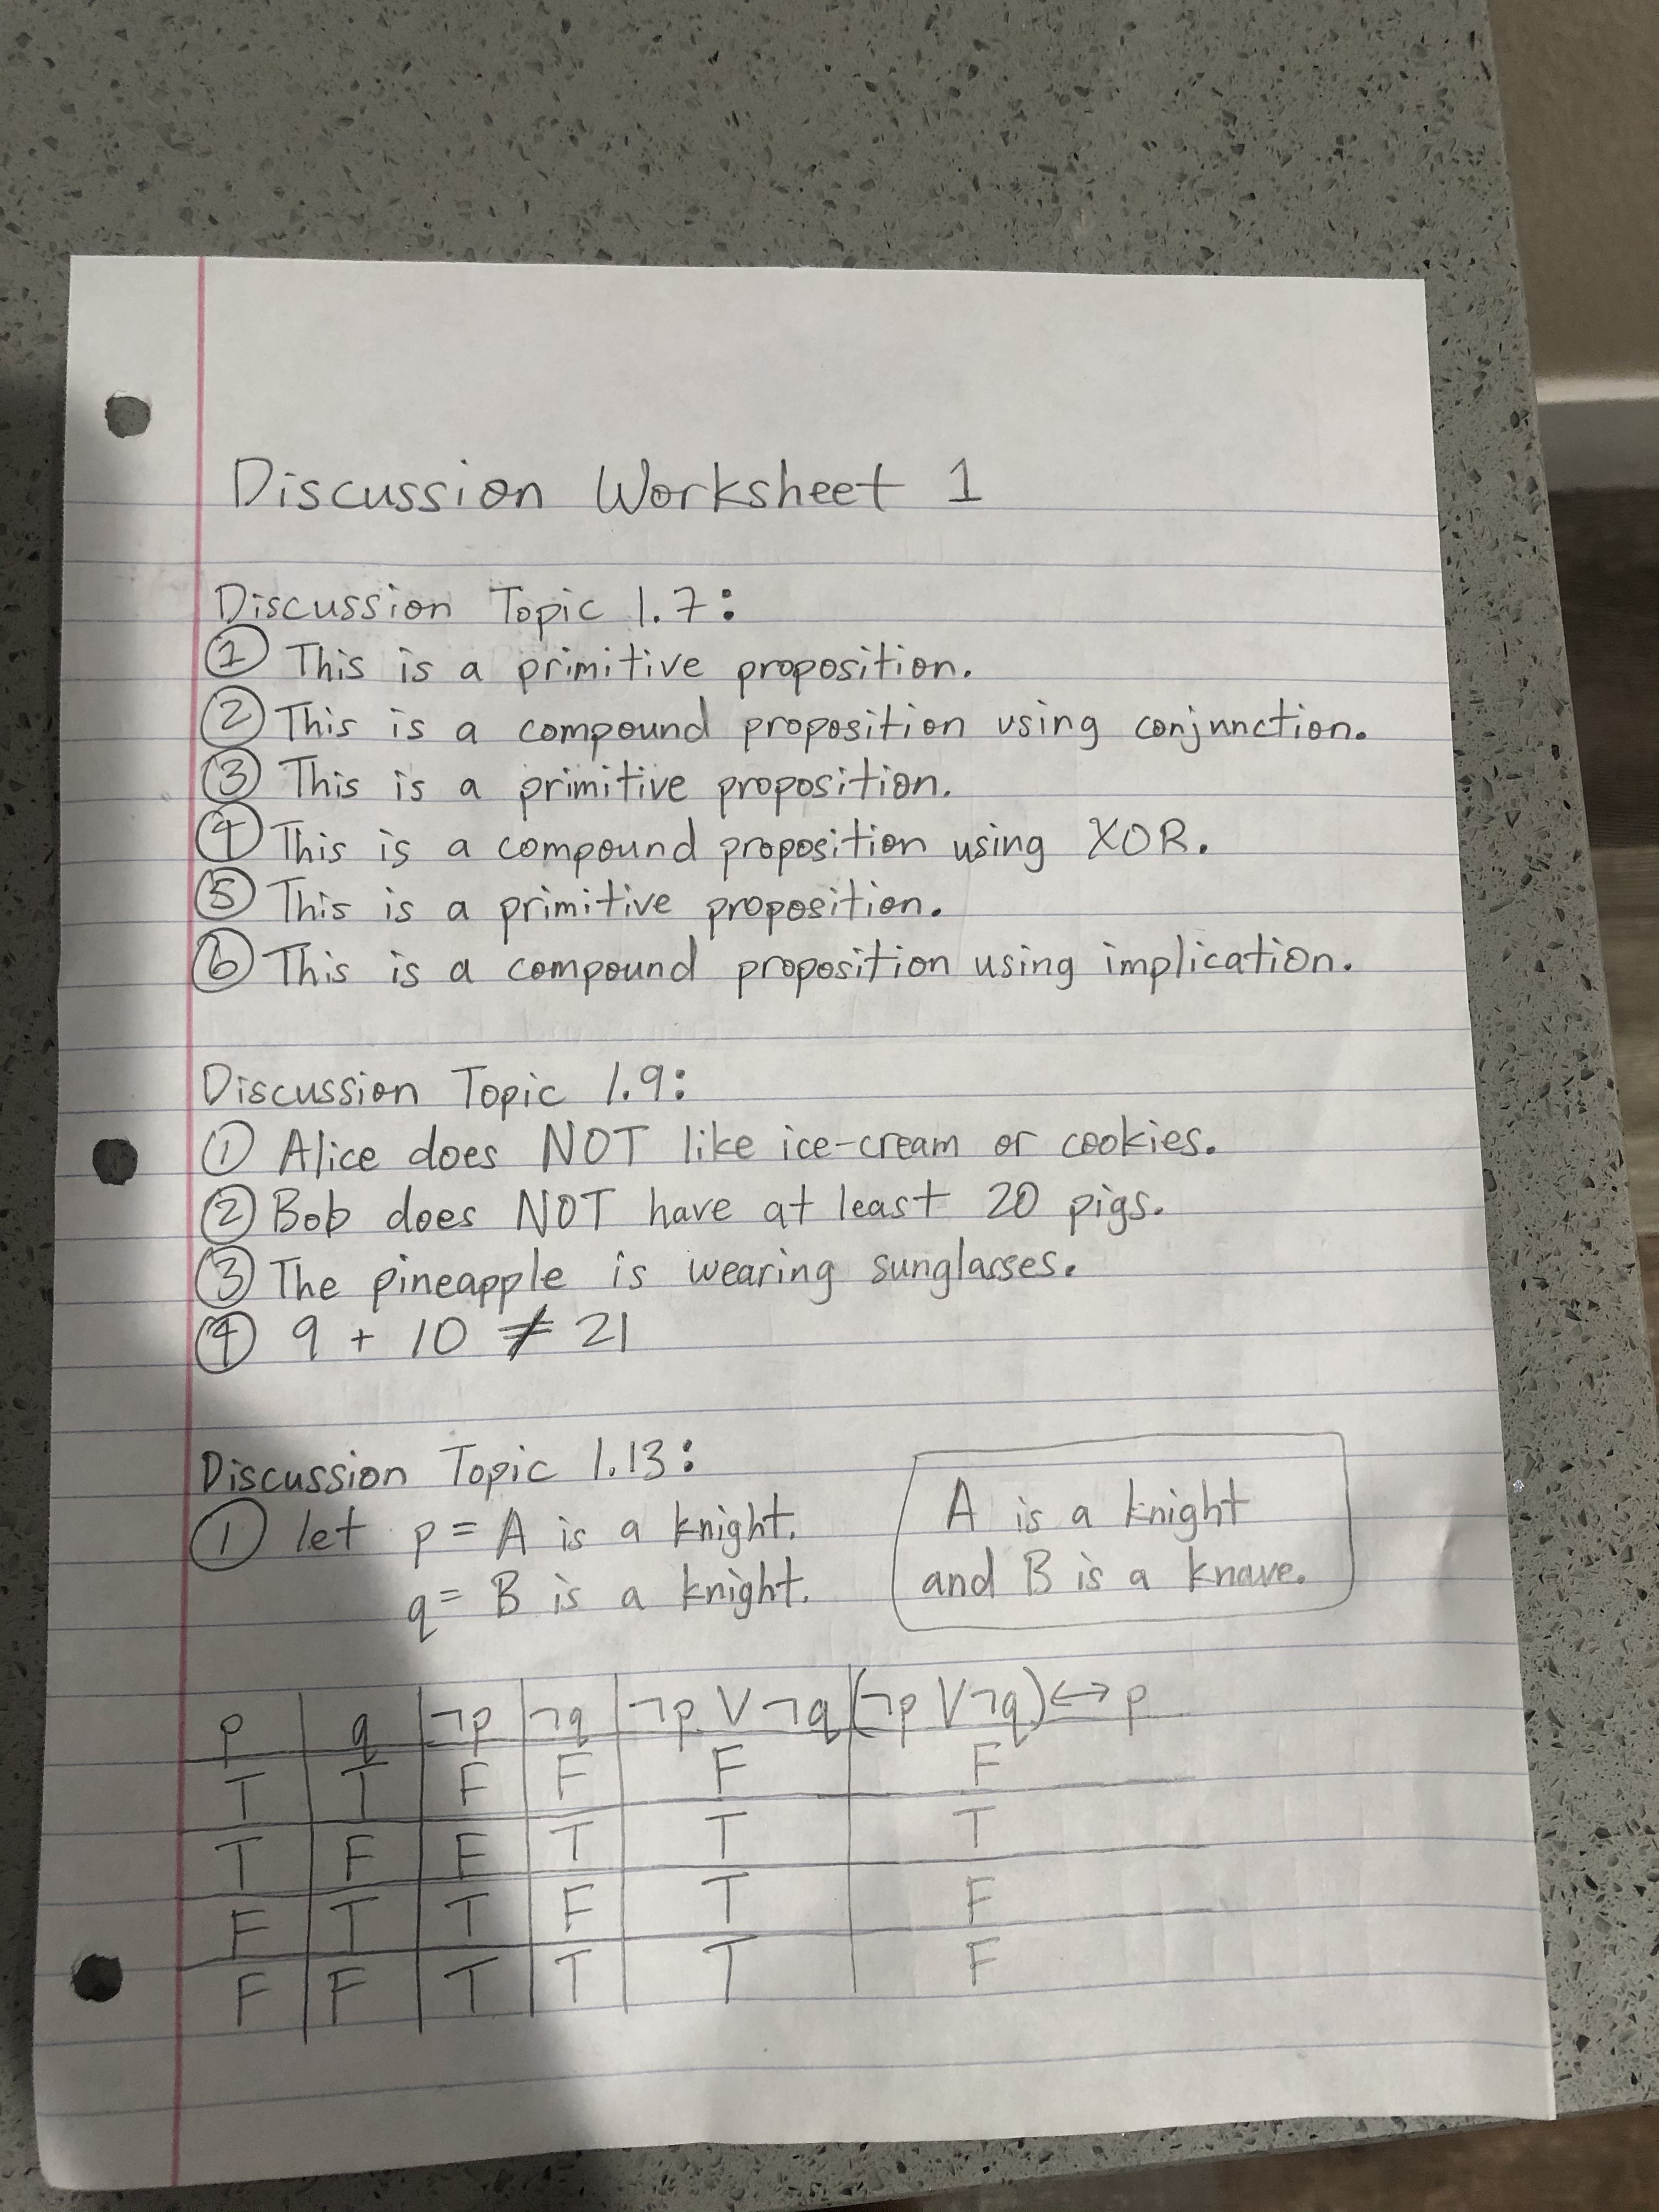 Discussion Worksheet 1
Discussion Topic 1.7:
① This is a primitive proposition.
② This is a compound proposition using conjunction.
③ This is a primitive proposition.
④ This is a compound proposition using XOR.
⑤ This is a primitive proposition.
⑥ This is a compound proposition using implication.
Discussion Topic 1.9:
① Alice does NOT like ice-cream or cookies.
② Bob does NOT have at least 20 pigs.
③ The pineapple is wearing sunglasses.
④ 9 + 10 ≠ 21
Discussion Topic 1.13:
① let p = A is a knight.
q = B is a knight.
A is a knight
and B is a knave.
p q ¬p ¬q ¬p ∨ ¬q (¬p ∨ ¬q) ↔ p
T T F F F F
T F F T T T
F T T F T F
F F T T T F